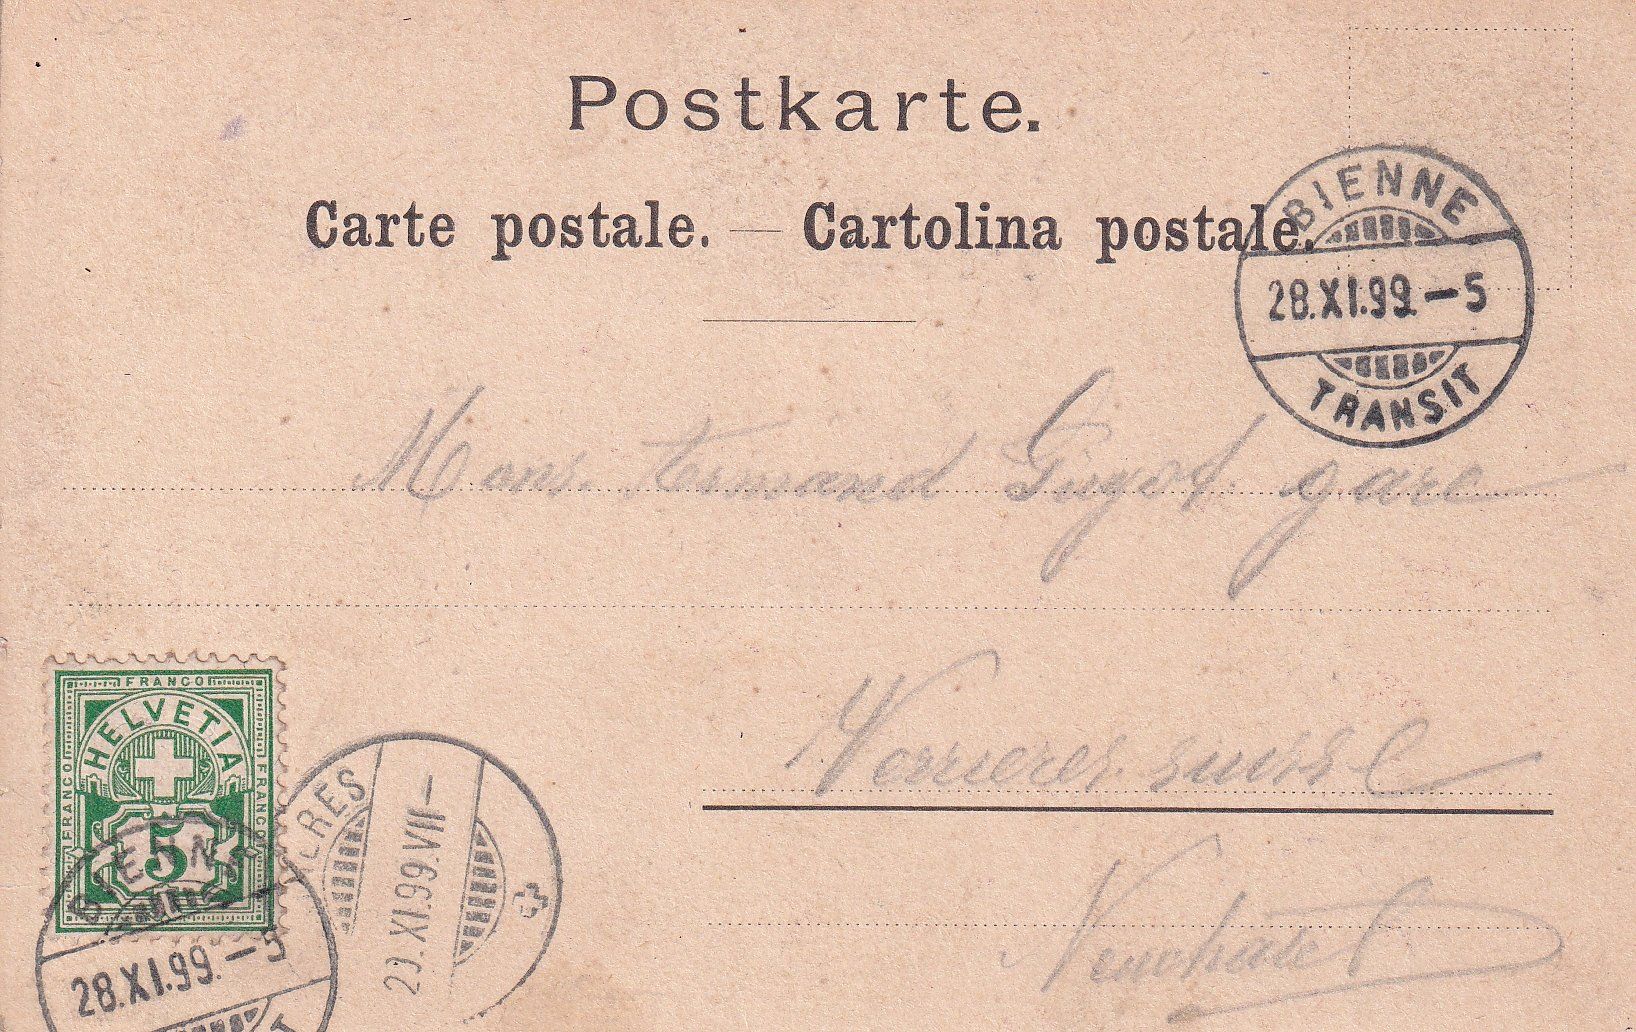 Postkarte.
Carte postale. — Cartolina postale.
BIENNE
28.XI.99.–5
TRANSIT
Mons. Girgot. gare
Verrieres suisse
Neuchatel
FRANCO
FRANCO
FRANCO
HELVETIA
5
BIENNE
28.XI.99.–5
29.XI.99.VII–